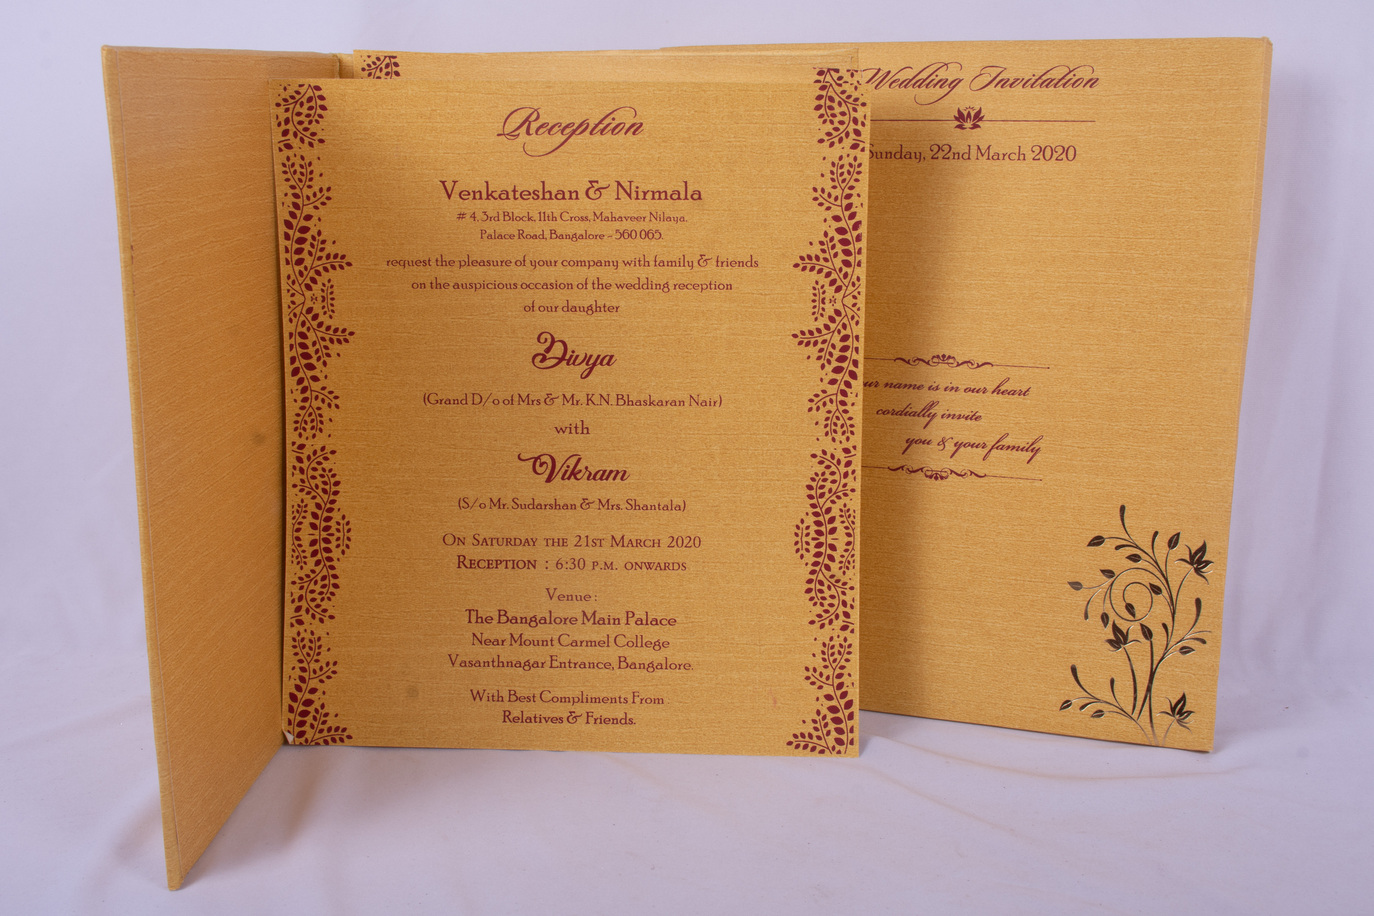 Reception
Venkateshan & Nirmala
# 4, 3rd Block, 11th Cross, Mahaveer Nilaya,
Palace Road, Bangalore - 560 065.
request the pleasure of your company with family & friends
on the auspicious occasion of the wedding reception
of our daughter
Divya
(Grand D/o of Mrs & Mr. K.N. Bhaskaran Nair)
with
Vikram
(S/o Mr. Sudarshan & Mrs. Shantala)
On Saturday the 21st March 2020
Reception : 6:30 p.m. onwards
Venue :
The Bangalore Main Palace
Near Mount Carmel College
Vasanthnagar Entrance, Bangalore.
With Best Compliments From
Relatives & Friends.
Wedding Invitation
Sunday, 22nd March 2020
name is in our heart
cordially invite
you & your family